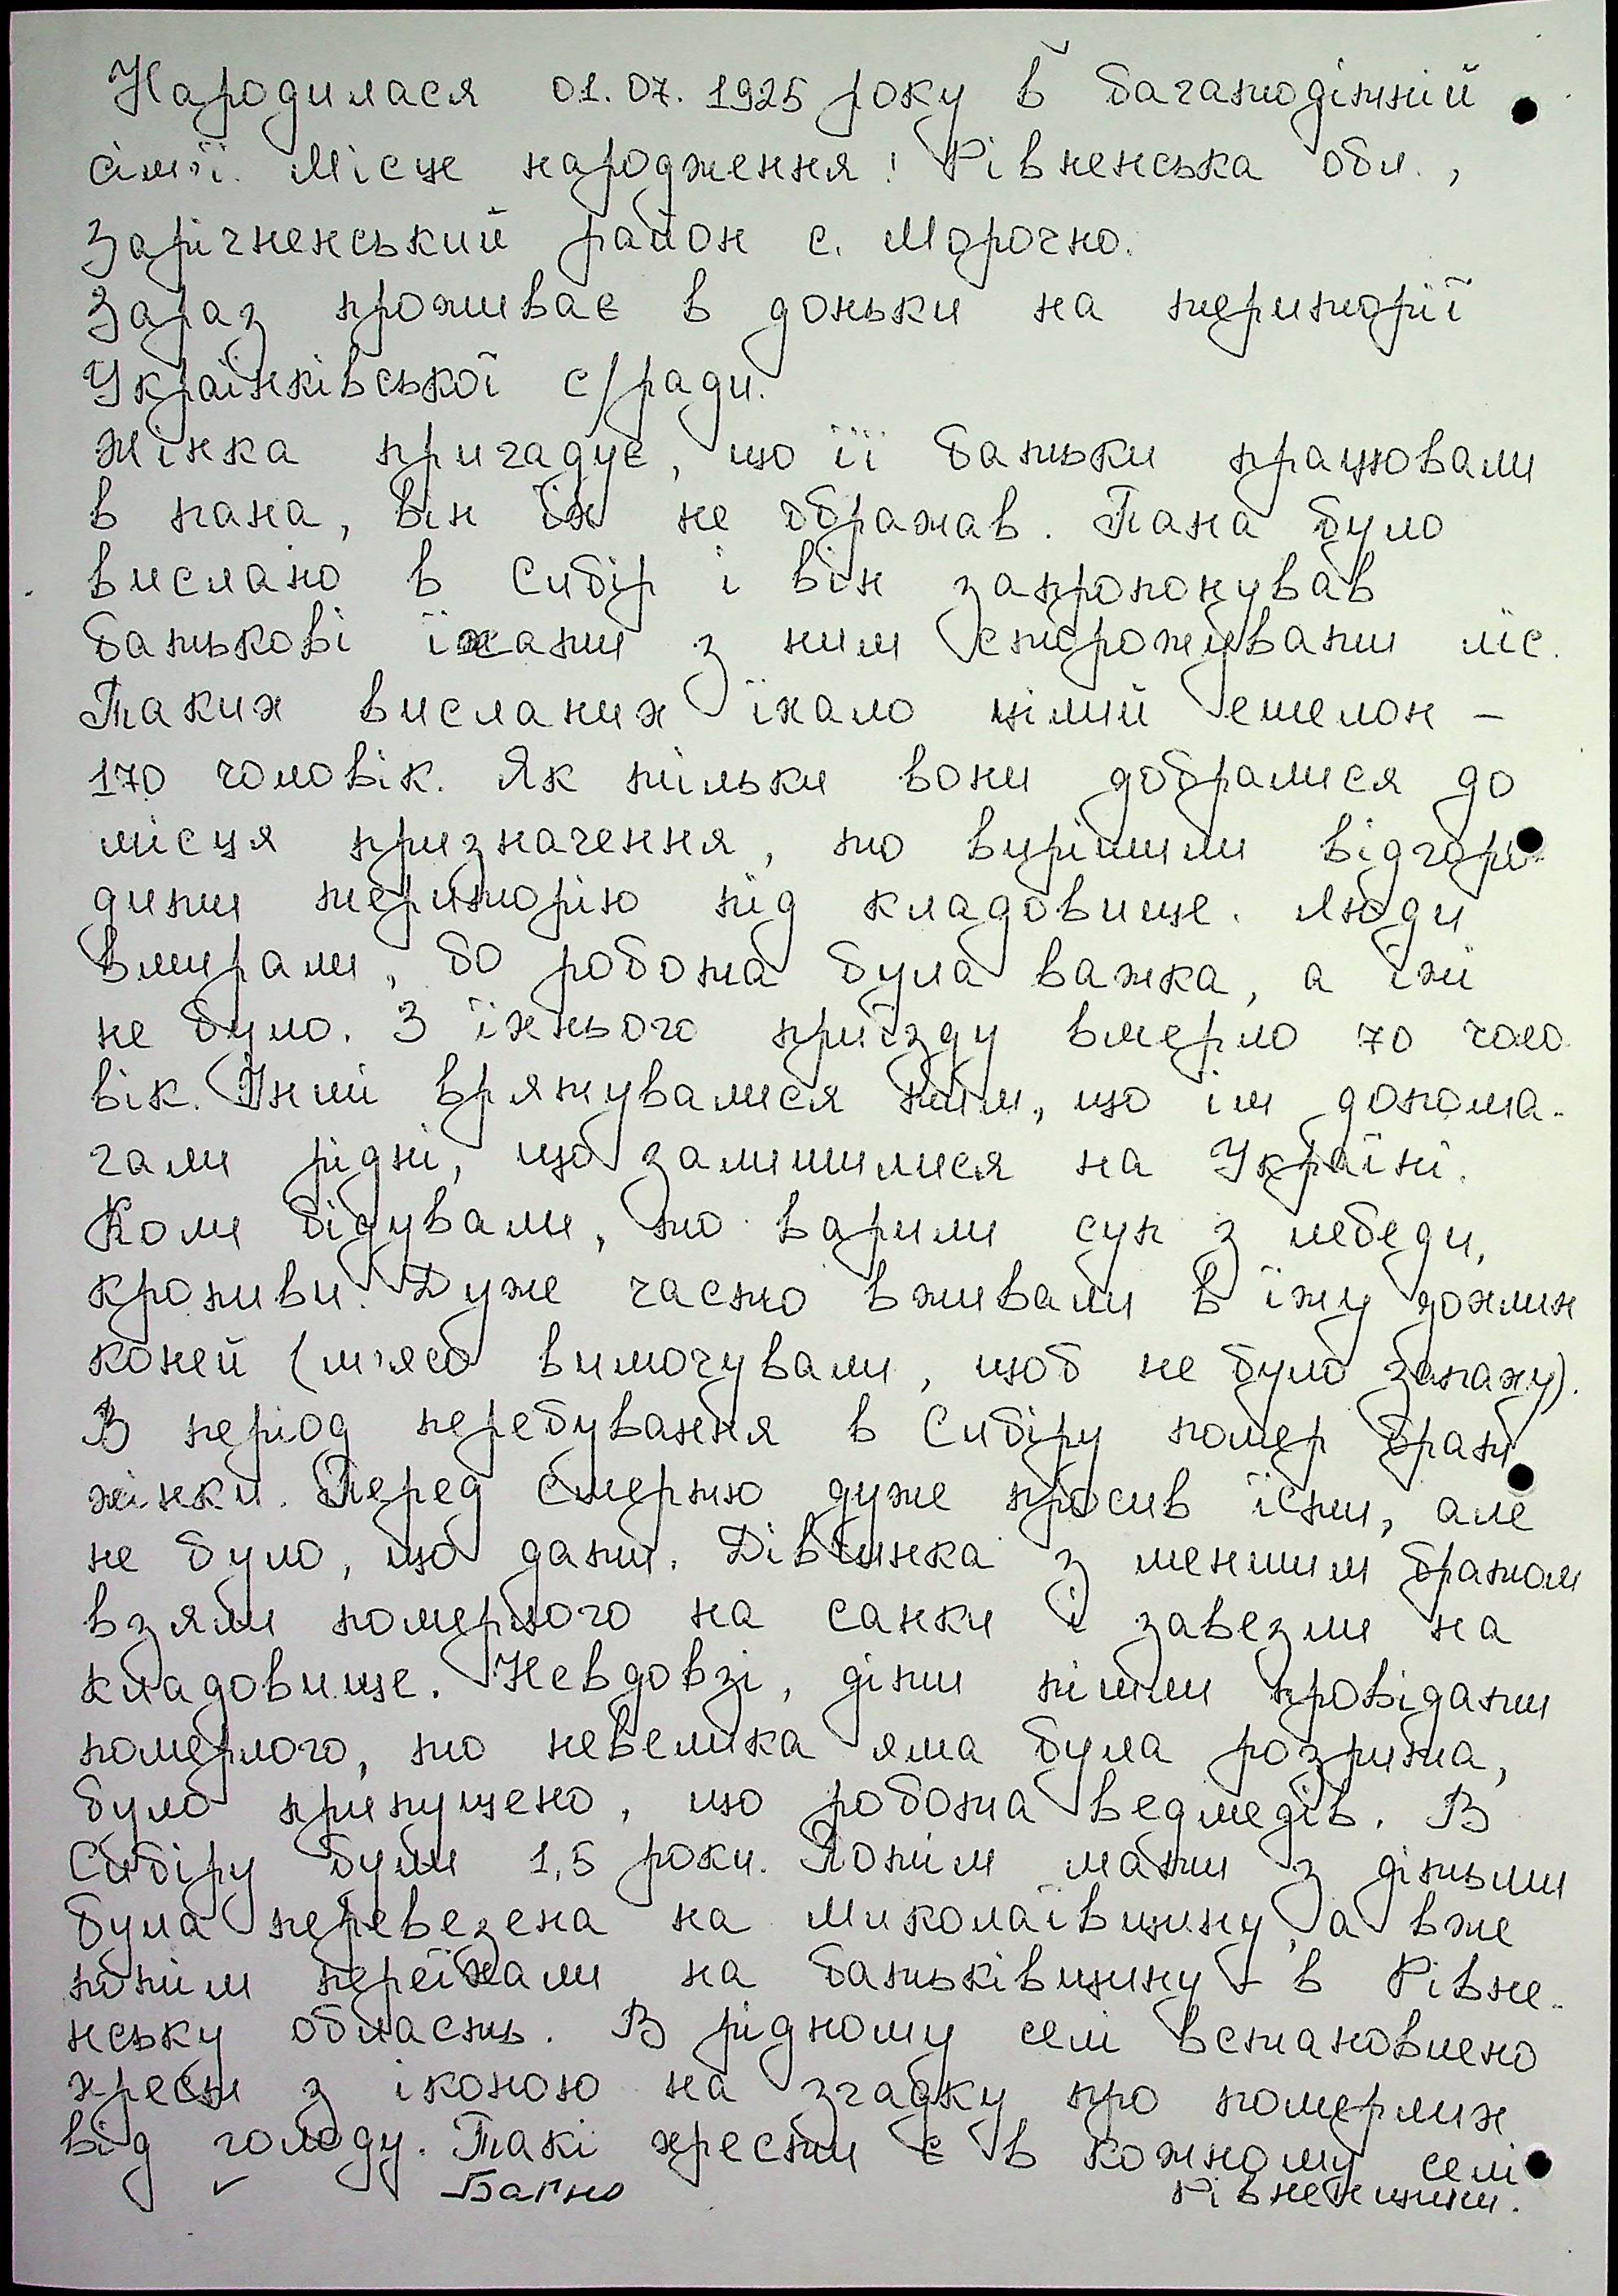 Народилася 01.07.1925 року в багатодітній
сім'ї. Місце народження: Рівненська обл.,
Зарічненський район с. Морочно.
Зараз проживає в доньки на території
Українківської с/ради.
Жінка пригадує, що її батьки працювали
в пана, він їх не ображав. Пана було
вислано в Сибір і він запропонував
батькові їхати з ним сторожувати ліс.
Таких висланих їхало цілий ешелон –
170 чоловік. Як тільки вони добралися до
місця призначення, то вирішили відгоро-
дити територію під кладовище. Люди
вмирали, бо робота була важка, а їжі
не було. З їхнього приїзду вмерло 70 чоло-
вік. Інші врятувалися тим, що їм допома-
гали рідні, що залишилися на Україні.
Коли бідували, то варили суп з лебеди,
кропиви. Дуже часто вживали в їжу дохлих
коней (м'ясо вимочували, щоб не було запаху).
В період перебування в Сибіру помер брат
жінки. Перед смертю дуже просив їсти, але
не було, що дати. Дівчинка з меншим братом
взяли померлого на санки і завезли на
кладовище. Невдовзі, діти пішли провідати
померлого, то невелика яма була розрита,
було припущено, що робота ведмедів. В
Сибіру були 1,5 роки. Потім мати з дітьми
була перевезена на Миколаївщину, а вже
потім переїхали на батьківщину – в Рівне-
нську область. В рідному селі встановлено
хрести з іконою на згадку про померлих
від голоду. Такі хрести є в кожному селі
Рівненщини.